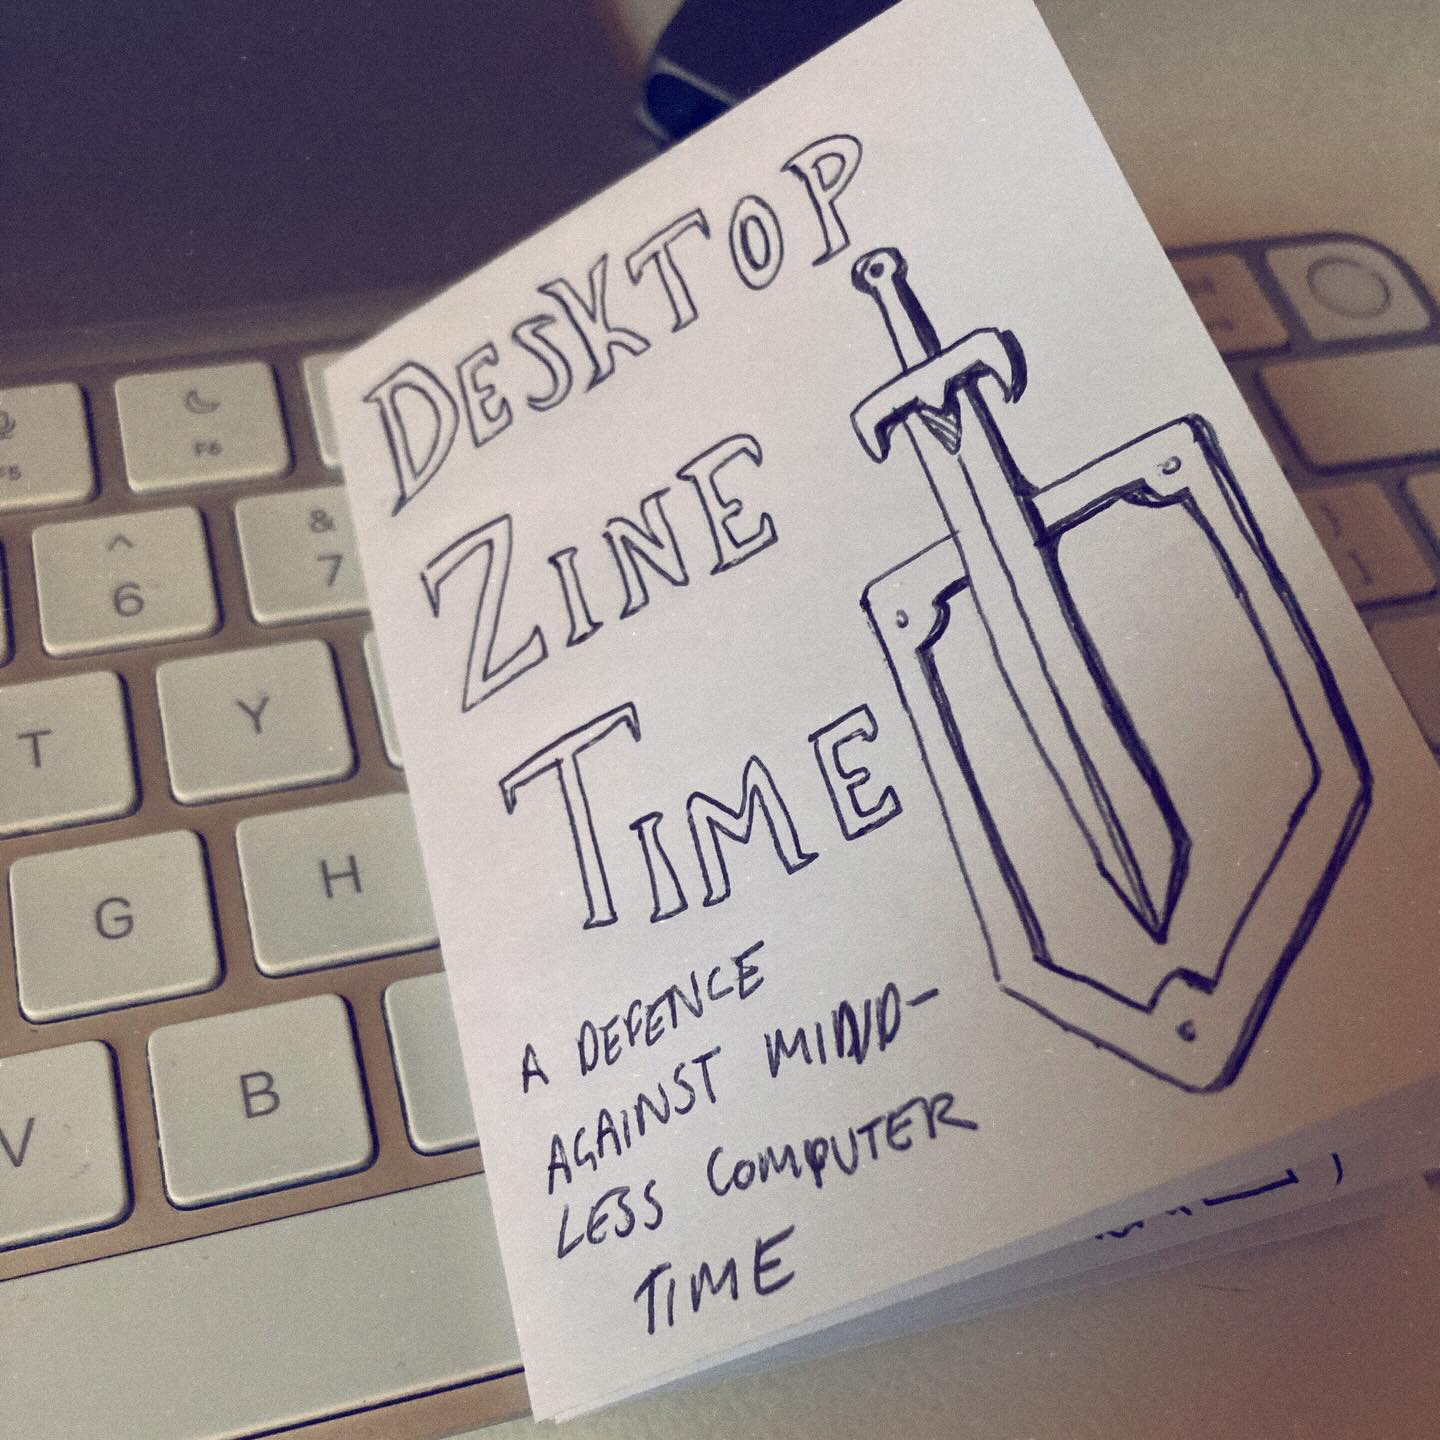 DESKTOP
ZINE
TIME
A DEFENCE
AGAINST MIND-
LESS COMPUTER
TIME
F5
F6
^
6
&
7
T
Y
G
H
V
B